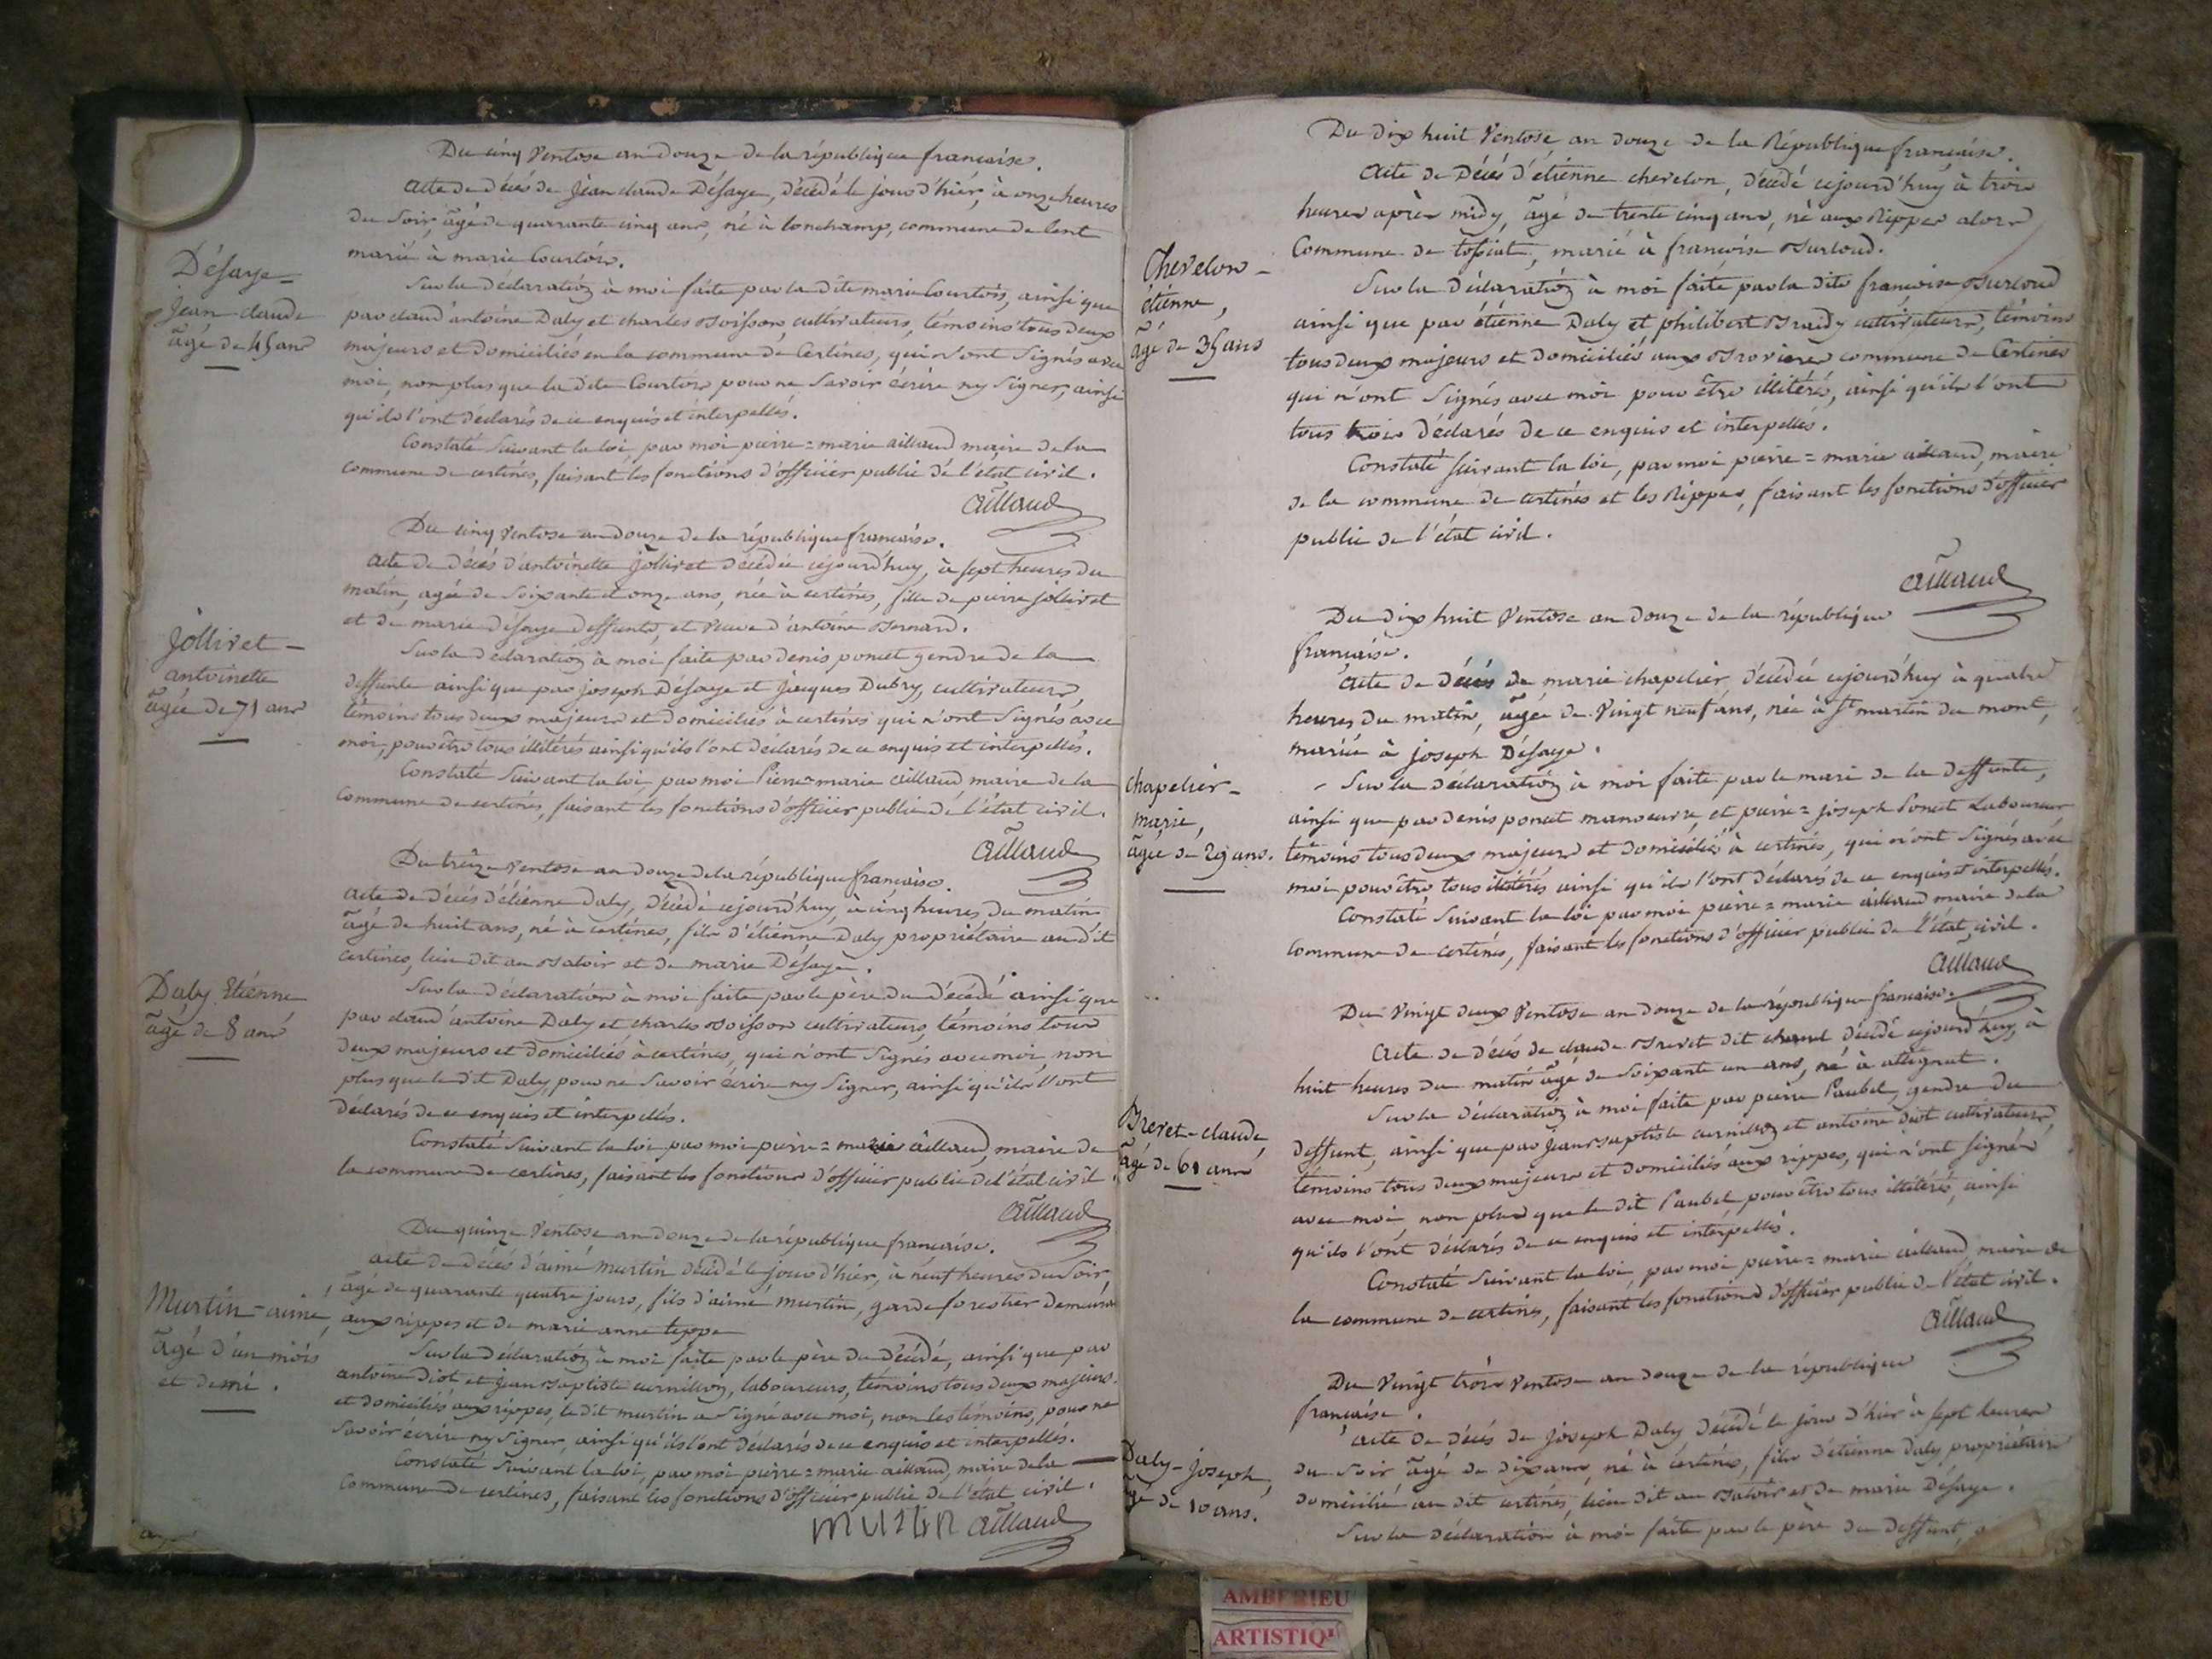 Du cinq Ventose an douze de la république française.
Acte de décés de Jean claude Désaye, décédé le jour d'hiér, à onze heures
du Soir, âgé de quarante cinq ans, né à lonchamp, commune de lent
marié à marie Courtois.
Désaye =
Jean-claude
âgé de 45 ans
Sur la déclaration à moi faite par la dite marie Courtois, ainsi que
par claud' antoine Daly et charles Boisson, cultivateurs, témoins tous deux
majeurs et domiciliés en la commune de Certines, qui n'ont Signés avec
moi, non plus que la dite Courtois pour ne Savoir écrire ny Signer, ainsi
qu'ils l'ont déclarés de ce enquis et interpellés.
Constaté Suivant la loi, par moi pierre = marie aillaud maire de la
commune de certines, faisant les fonctions d'officier public de l'état civil.
aillaud
Du cinq Ventose an douze de la république française.
Acte de décés d'antoinette jollivet décédée cejourd'huy, à sept heures du
matin, agée de Soixante et onze ans, née à certines, fille de pierre jollivet
et de marie désaye deffunts, et veuve d'antoine Bernard.
Jollivet -
antoinette
âgée de 71 ans
Sur la déclaration à moi faite par denis poncet gendre de la
deffunte ainsi que par joseph Désaye et jacques Dubry, cultivateurs,
témoins tous deux majeurs et domiciliés à certines qui n'ont Signés avec
moi, pour être tous illitérés ainsi qu'ils l'ont déclarés de ce enquis et interpellés.
Constaté Suivant la loi, par moi Pierre = marie aillaud maire de la
Commune de certines, faisant les fonctions d'officier public de l'état civil.
aillaud
Du treize Ventose an douze de la république française.
Acte de décés d'étienne Daly, décédé cejourd'huy, à cinq heures du matin
âgé de huit ans, né à certines, fils d'étienne Daly propriétaire au dit
certines, lieu dit au Batoir et de marie Desaye.
Daly Etienne
âgé de 8 ans
Sur la déclaration à moi faite par le père du décédé ainsi que
par claud' antoine Daly et charles Boisson cultivateurs, témoins tous
deux majeurs et domiciliés à certines, qui n'ont Signés avec moi, non
plus que le dit Daly, pour ne Savoir écrire ny Signer, ainsi qu'ils l'ont
déclarés de ce enquis et interpellés.
Constaté Suivant la loi par moi pierre = marie aillaud, maire de
la commune de certines, faisant les fonctions d'officier public de l'état civil.
aillaud
Du quinze Ventose an douze de la république française.
acte de décés d'aimé murtin décédé le jour d'hier, à neuf heures du Soir,
âgé de quarante quatre jours, fils d'aimé murtin, garde forestier demeurant
aux rippes et de marie anne teppe
Murtin = aimé,
âgé d'un mois
et demi.
Sur la déclaration à moi faite par le père du décédé, ainsi que par
antoine diot et jean Baptiste curnillon, laboureurs, témoins tous deux majeurs
et domiciliés aux rippes, le dit murtin a Signé avec moi, non les témoins, pour ne
Savoir écrire ny Signer, ainsi qu'ils l'ont déclarés de ce enquis et interpellés.
Constaté Suivant la loi, par moi pierre = marie aillaud, maire de la
Commune de certines, faisant les fonctions d'officier public de l'état civil.
MURTIN aillaud
Du dix huit Ventose an douze de la République française.
Acte de Décés d'étienne chevelon, décédé cejourd'huy à trois
heures après midy, âgé de trente cinq ans, né aux Rippes alors
Commune de tossiat, marié à françoise Burloud.
Chevelon -
étienne,
âgé de 35 ans
Sur la déclaration à moi faite par la dite françoise Burloud
ainsi que par étienne Daly et philibert Brardy cultivateurs, témoins
tous deux majeurs et domiciliés aux Brovieres commune de Certines
qui n'ont Signés avec moi pour être illitérés, ainsi qu'ils l'ont
tous trois déclarés de ce enquis et interpellés.
Constaté suivant la loi, par moi pierre = marie aillaud, maire
de la commune de certines et les Rippes, faisant les fonctions d'officier
public de l'état civil.
aillaud
Du dix huit Ventose an douze de la république
française.
Acte de décés de marie chapelier, décédée cejourd'huy à quatre
heures du matin, âgée de Vingt neuf ans, née à St martin du mont,
mariée à joseph Désaye.
chapelier -
marie,
âgée de 29 ans.
Sur la déclaration à moi faite par le mari de la deffunte,
ainsi que par denis poncet manoeuvre, et pierre = joseph Poncet Laboureur
témoins tous deux majeurs et domiciliés à certines, qui n'ont Signés avec
moi pour être tous illitérés ainsi qu'ils l'ont déclarés de ce enquis et interpellés.
Constaté Suivant la loi par moi pierre = marie aillaud maire de la
commune de certines, faisant les fonctions d'officier public de l'état civil.
aillaud
Du Vingt deux Ventose an douze de la république française.
Acte de décés de claude Brevet dit décédé cejourd'huy, à
huit heures du matin âgé de Soixante un ans, né à attignat.
Brevet - claude,
âgé de 61 ans
Sur la déclaration à moi faite par pierre Paubel, gendre du
deffunt, ainsi que par jean Baptiste curnillon et antoine diot cultivateurs,
témoins tous deux majeurs et domiciliés aux rippes, qui n'ont signés
avec moi, non plus que le dit Paubel, pour être tous illitérés, ainsi
qu'ils l'ont déclarés de ce enquis et interpellés.
Constaté Suivant la loi, par moi pierre = marie aillaud, maire de
la commune de certines, faisant les fonctions d'officier public de l'état civil.
aillaud
Du Vingt trois Ventose an douze de la république
française.
Acte de décés de joseph Daly décédé le jour d'hier à sept heures
du Soir âgé de dix ans, né à certines, fils d'étienne Daly propriétaire
domicilié au dit certines, lieu dit au Batoir et de marie Désaye.
Daly - joseph,
âgé de 10 ans.
Sur la déclaration à moi faite par le père du deffunt,
AMBERIEU
ARTISTIQ